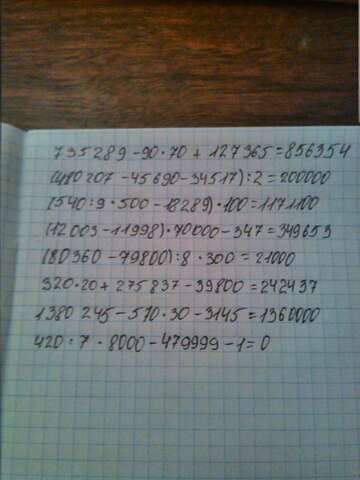 735289-90·70+127365=856354
(480207-45690-34517):2=200000
(540:9·500-18289)·100=1171100
(12003-11998)·70000-347=349653
(80360-79800):8·300=21000
320·20+275837-39800=242437
1380245-570·30-3145=1360000
420:7·8000-479999-1=0